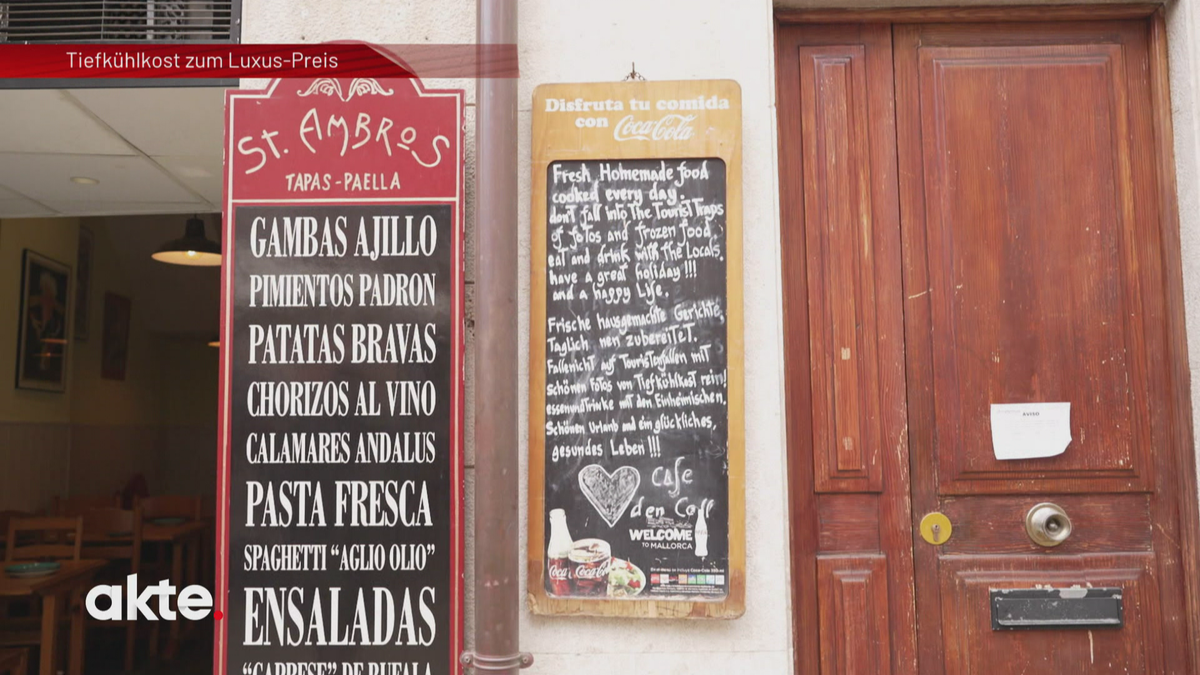 Tiefkühlkost zum Luxus-Preis
St. AMBROS
TAPAS-PAELLA
GAMBAS AJILLO
PIMIENTOS PADRON
PATATAS BRAVAS
CHORIZOS AL VINO
CALAMARES ANDALUS
PASTA FRESCA
SPAGHETTI “AGLIO OLIO”
ENSALADAS
“CAPRESE” DE BUFALA
Disfruta tu comida
con Coca-Cola
Fresh Homemade food
cooked every day.
don't fall into The Tourist Traps
of fotos and frozen food,
eat and drink with the Locals.
have a great holiday!!!
and a happy Life.
Frische hausgemachte Gerichte,
Täglich neu zubereitet.
Fallenicht auf Touristenfallen mit
schönen Fotos von Tiefkühlkost rein!
essenundTrinke mit den Einheimischen.
Schönen Urlaub und ein glückliches,
gesundes Leben!!!
Cafe
den Coll
WELCOME
TO MALLORCA
Coca-Cola
AVISO
akte.